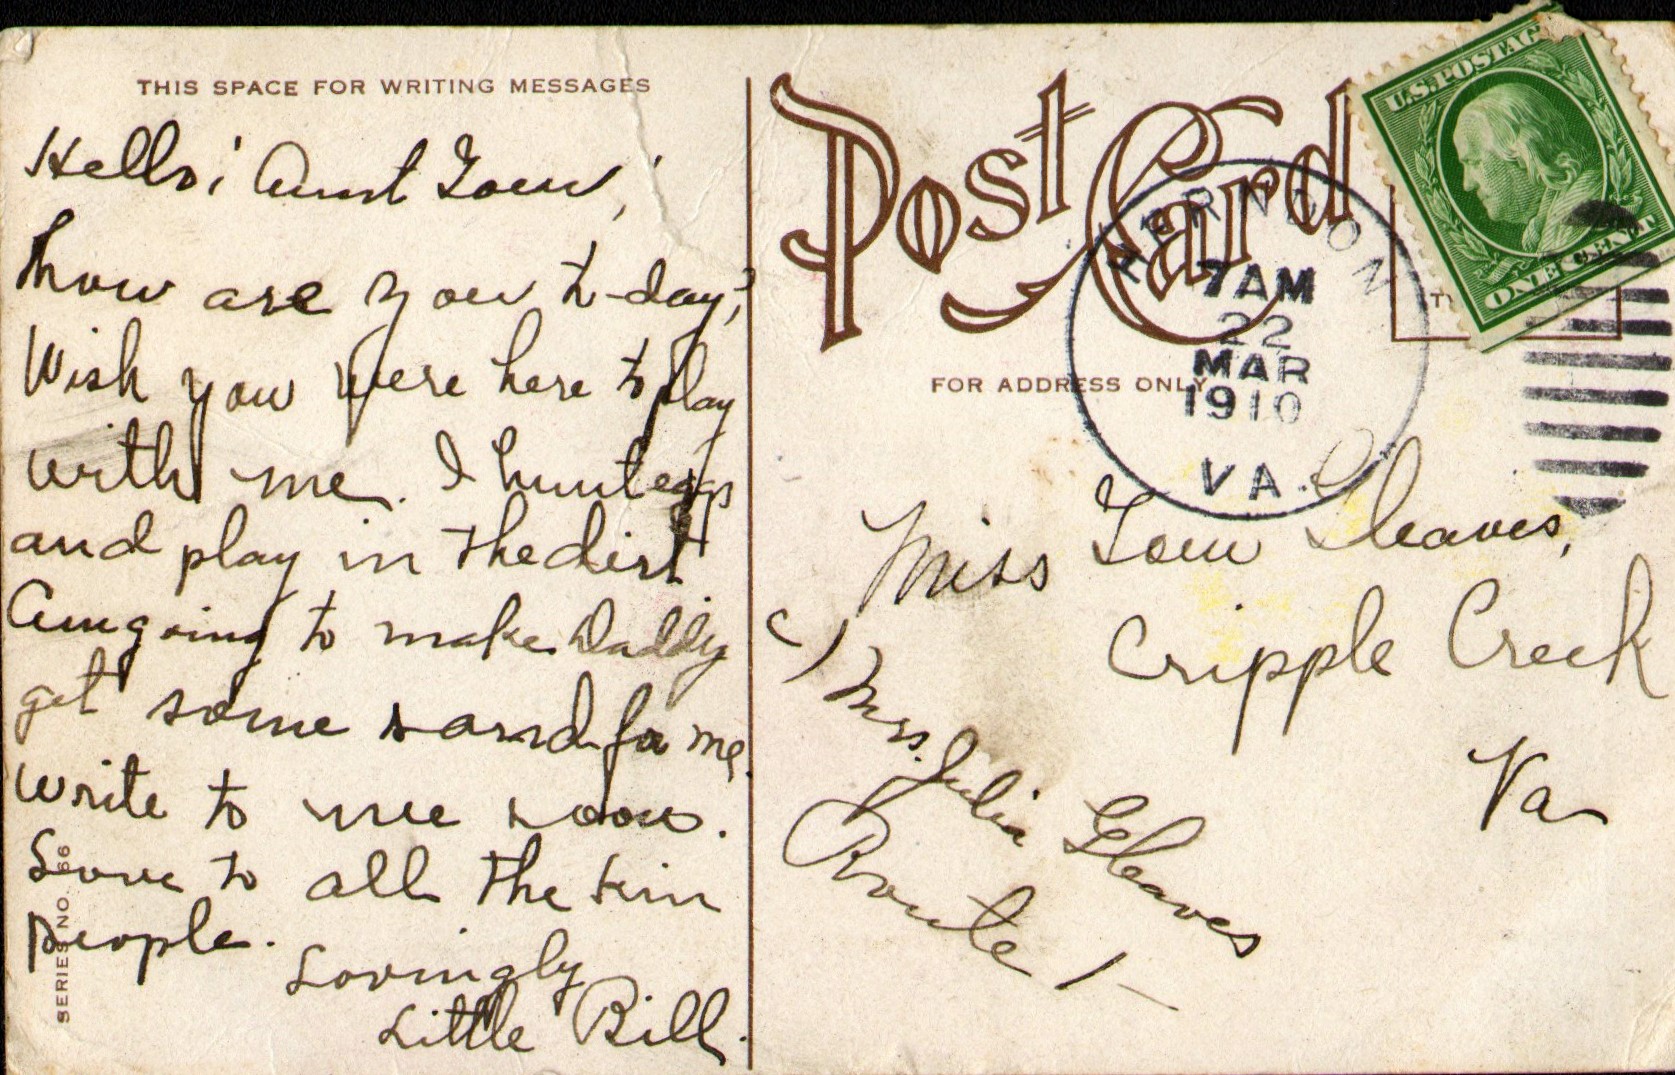 THIS SPACE FOR WRITING MESSAGES
Hello! Aunt Lou,
how are you to-day?
Wish you were here to play
with me. I hunt eggs
and play in the dirt
Am going to make Daddy
get some sand for me.
Write to me soon.
Love to all the kin
people.
Lovingly
Little Bill.
SERIES NO. 66
Post Card
FOR ADDRESS ONLY
U.S. POSTAGE
ONE CENT
HERNDON
7 AM
22
MAR
1910
VA.
Miss Lou Gleaves,
Cripple Creek
Va
c/ Mrs. Julia Gleaves
Route 1